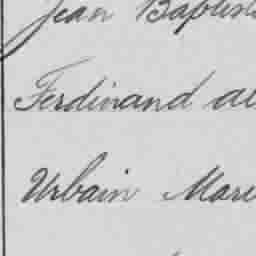 Jean Baptist
Ferdinand al
Urbain Mare